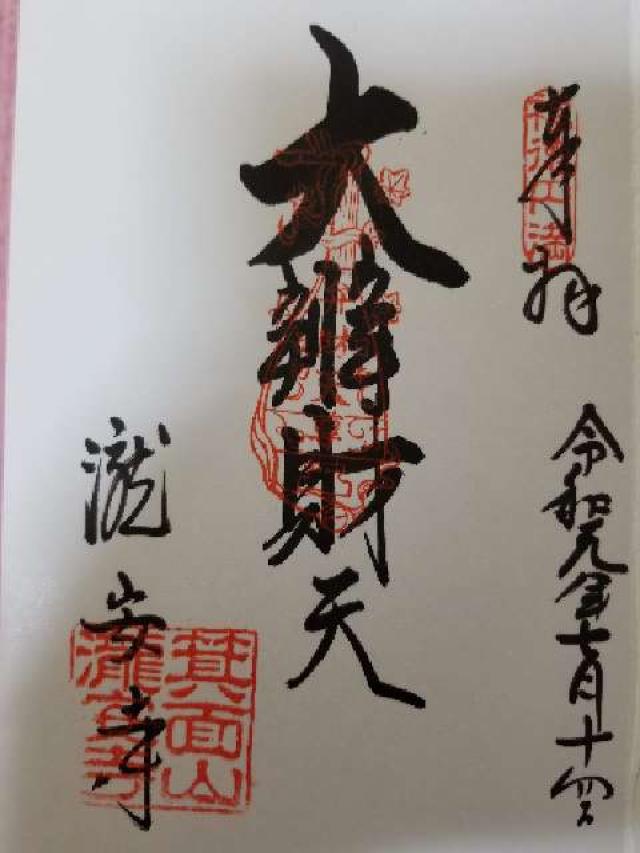 奉拝
令和元年七月十四日
大辨財天
瀧安寺
箕面山
瀧安寺